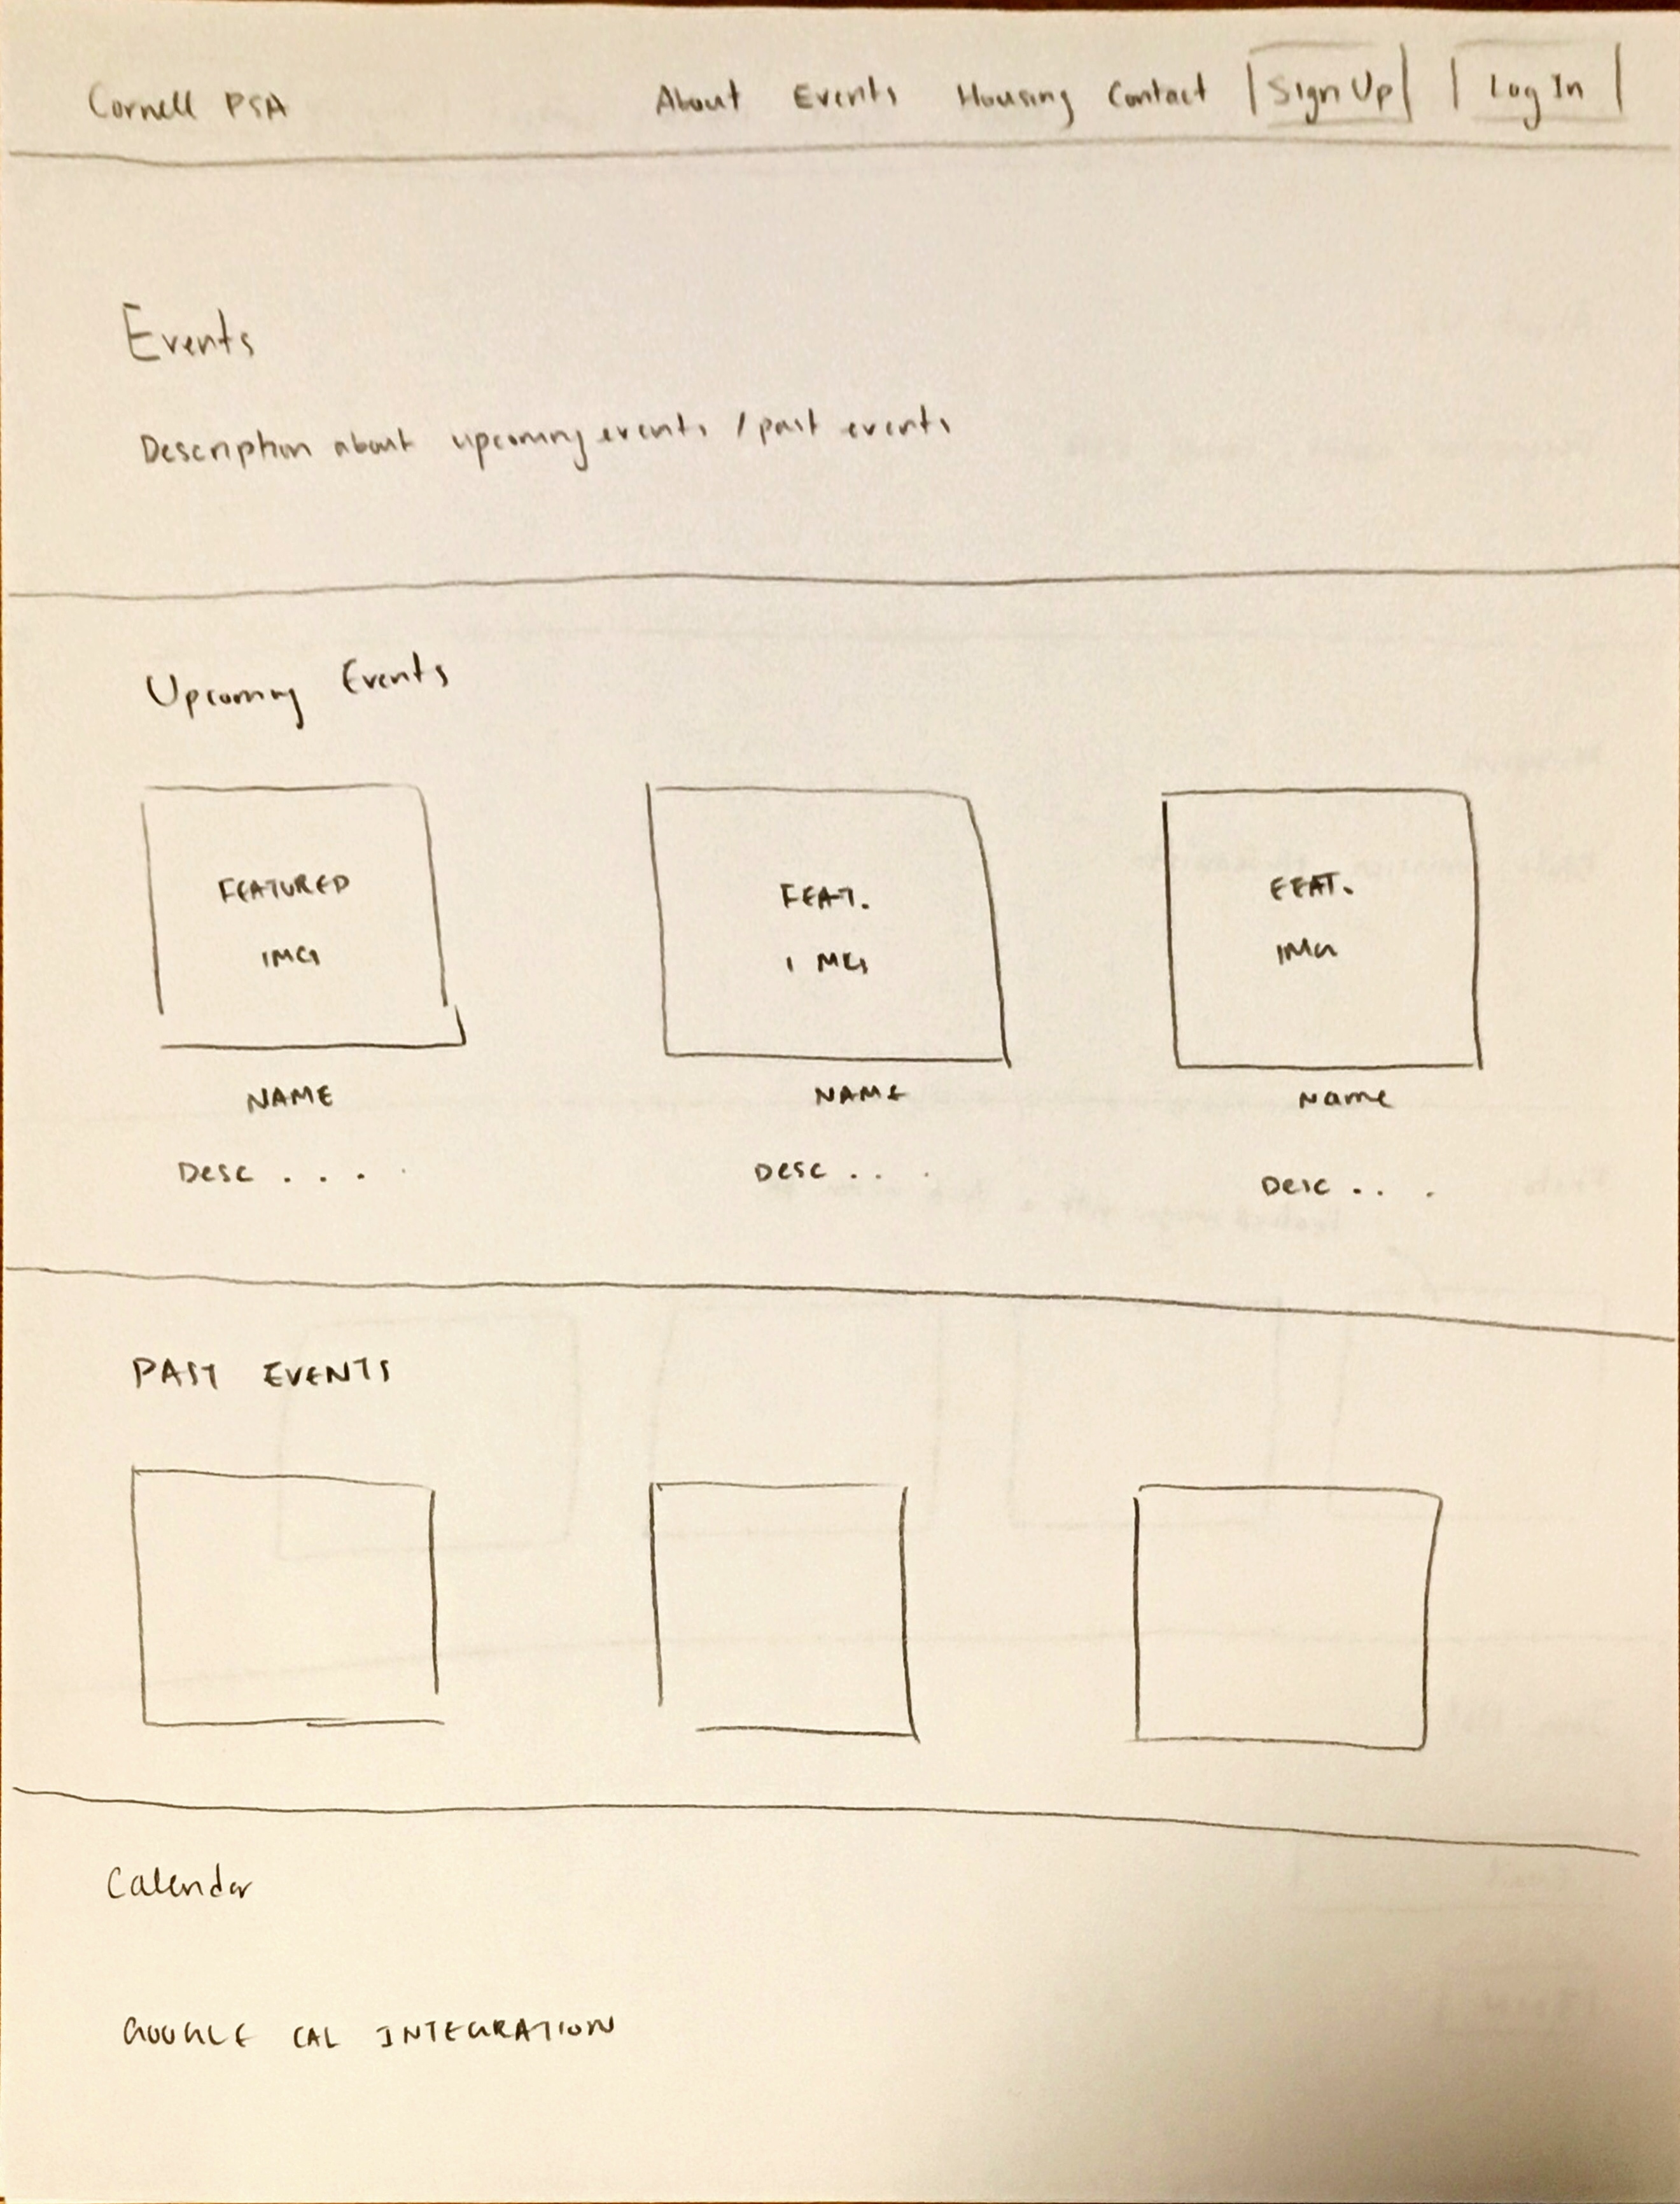 Cornell PSA About Events Housing Contact Sign Up Log In
Events
Description about upcoming events / past events
Upcoming Events
FEATURED FEAT. FEAT.
IMG IMG IMG
NAME NAME Name
Desc . . . . Desc . . . Desc . . .
PAST EVENTS
Calendar
GOOGLE CAL INTEGRATION